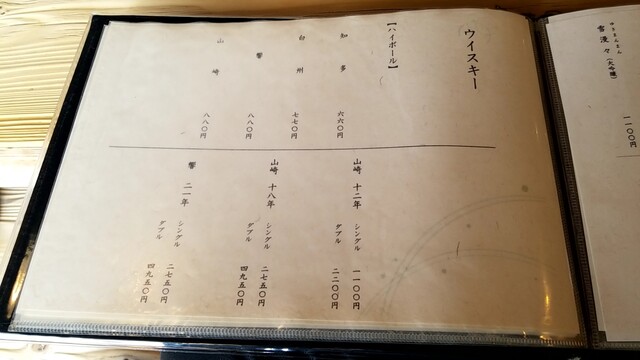 ゆきまんまん
雪漫々（大吟醸）
一一〇〇円
ウイスキー
【ハイボール】
知多 六六〇円
白州 七七〇円
響 八八〇円
山崎 八八〇円
山崎 十二年 シングル 一一〇〇円
ダブル 二二〇〇円
山崎 十八年 シングル 二七五〇円
ダブル 四九五〇円
響 二一年 シングル 二七五〇円
ダブル 四九五〇円